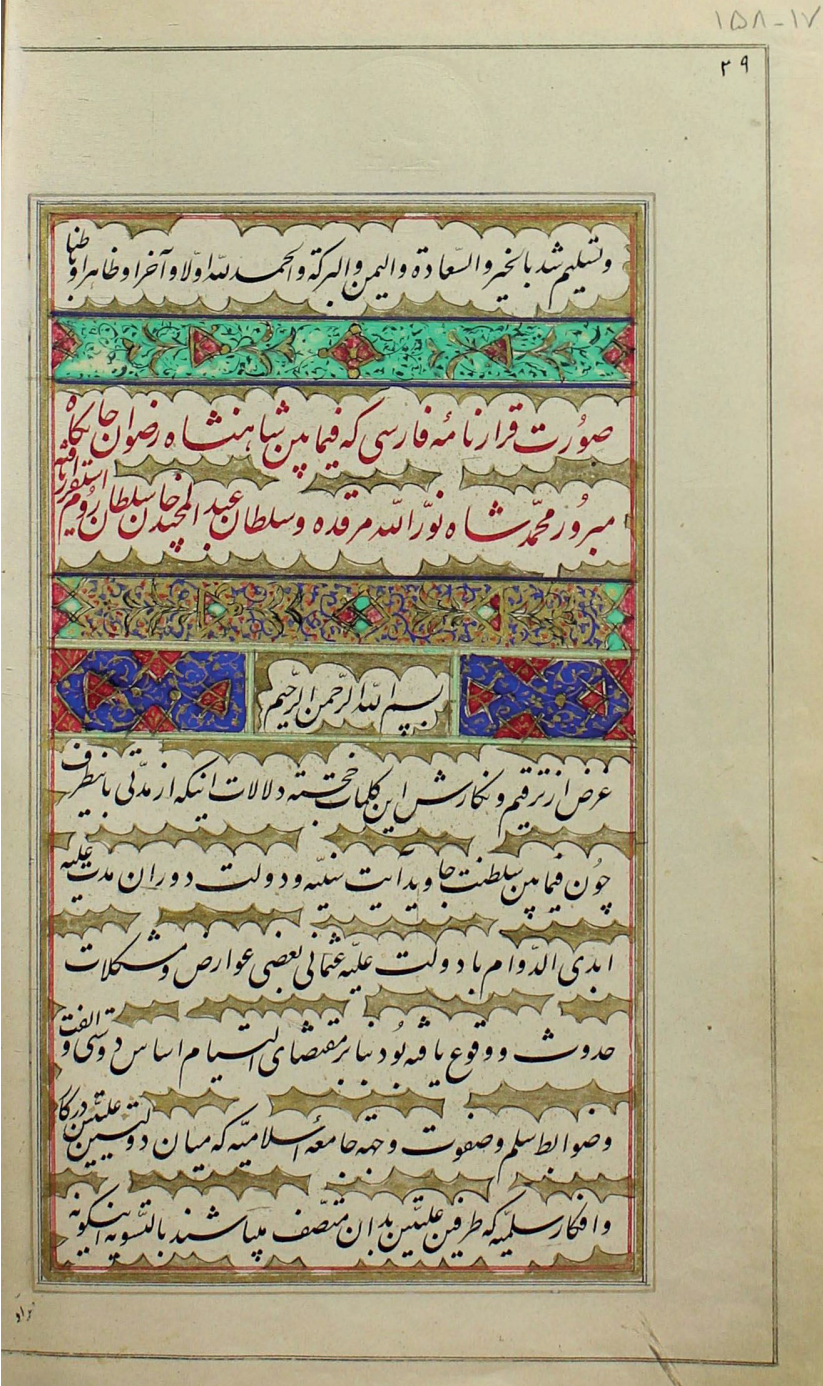 ۱۵۸-۱۷
۳۹
وتسلیم شد بالخیر والسّعادة والیمن والبرکة والحمد للّه اوّلا وآخرا وظاهرا وباطنا
صورت قرارنامهٔ فارسی که فیمابین شاهنشاه رضوان جایگاه
مبرور محمّد شاه نوّر اللّه مرقده وسلطان عبد المجید خان سلطان روم استقرار یافته
بسم اللّه الرّحمن الرّحیم
غرض از ترقیم و نکارش این کلمات خجسته دلالات اینکه از مدّتی باینطرف
چون فیمابین سلطنت جاوید آیت سنیّه و دولت دوران مدت علیّه
ابدی الدّوام با دولت علیّه عثمانی بعضی عوارض و مشکلات
حدوث و وقوع یافته بود بنا بر مقتضای التیام اساس دوستی و الفت
وضوابط سلم وصفوت وجهه جامعهٔ اسلامیّه که میان دولتین علیّتین درکار
وافکار سلمیّه که طرفین علیّتین بدان متّصف میباشند بالتسویه اینکونه